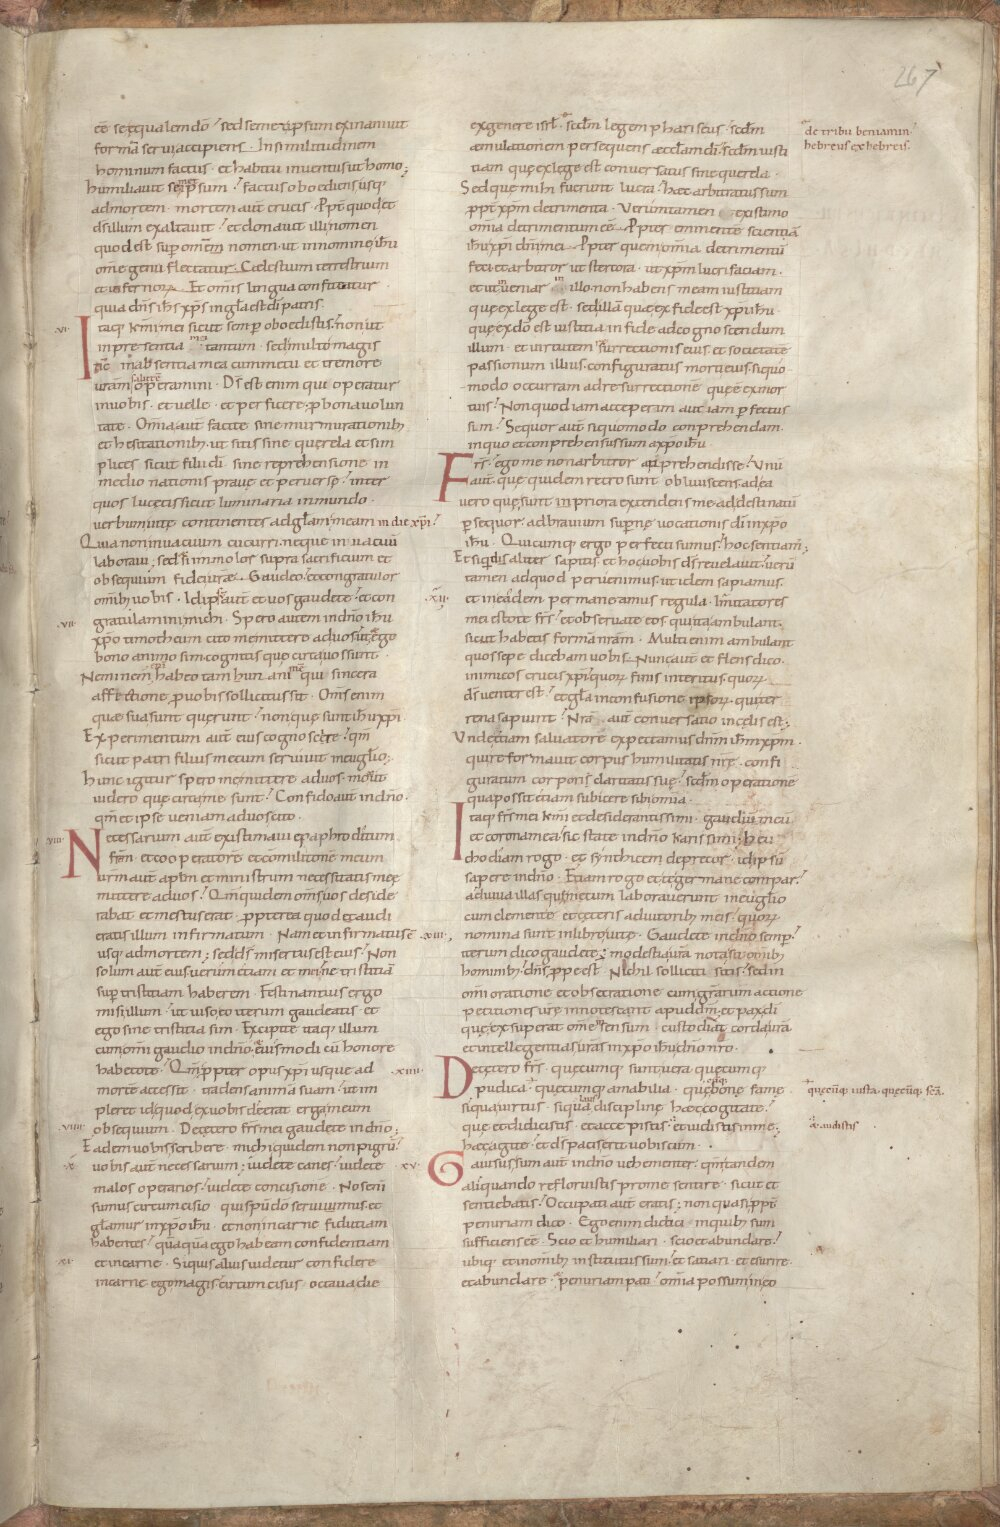 267
eē se ęqualem dō; sed semetipsum exinanivit
formā servi accipiens. In similitudinem
hominum factus. et habitu inventus ut homo;
humiliavit semet ipsum; factus oboediens usq;
ad mortem. mortem aut̄ crucis. Ppt̄ quod et
d̄s illum exaltavit; et donavit illi nomen
quod est sup omēm nomen. ut in nomine ih̄u
om̄e genu flectatur. Caelestium terrestrium
et infernorꝝ. Et omīs lingua confiteatur
quia dn̄s ih̄s xp̄s in gl̄a est d̄i patris.
·VI· Itaq; k̄mi mei sicut semp oboedistis; non ut
in presentia mei tantum. sed multo magis
nc̄ in absentia mea cum metu et tremore
vr̄am salutē operamini. D̄s est enim qui operatur
in vobis. et velle. et perficere; p bona volun
tate. Om̄ia aut̄ facite sine murmurationib;
et hesitationib; ut sitis sine querela et sim
plices sicut filii d̄i. sine reprehensione in
medio nationis pravę et perversę; inter
quos lucetis sicut luminaria in mundo.
verbum vitę continentes ad gl̄am meam in die xp̄i;
Quia non in vacuum cucurri. neque in vacuū
laboravi; sed si immolor supra sacrificium et
obsequium fidei vr̄ae. Gaudeo; et congratulor
omīb; vobis. Id ipsū aut̄ et vos gaudete; et con
·VII· gratulamini michi. Spero autem in dn̄o ih̄u
xp̄o timotheum cito me mittere ad vos; ut et ego
bono animo sim cognitis que circa vos sunt.
Neminem enī habeo tam hunanimē qui sincera
affectione p vobis sollicitus sit. Om̄s enim
quae sua sunt querunt; non que sunt ih̄u xp̄i.
Experimentum aut̄ eius cognoscite; qm̄
sicut patri filius mecum servivit in evgl̄io;
Hunc igitur spero me mittere ad vos. mox ut
videro que circa me sunt; Confido aut̄ in dn̄o.
qm̄ et ipse veniam ad vos cito.
·VIII· Necessarium aut̄ existimavi epaphroditum
frm̄. et cooperatorē et cōmilitonē meum
vr̄m aut̄ aplm̄ et ministrum necessitatis meę
mittere ad vos; Qm̄ quidem om̄s vos deside
rabat et mestus erat. ppterea quod audi
eratis illum infirmatum. Nam et infirmatus ē
usq; ad mortem; sed d̄s misertus est eius; Non
solum aut̄ eius verum etiam et mei. ne tristitiā
sup tristitiam haberem. Festinantius ergo
misi illum; ut viso eo iterum gaudeatis et
ego sine tristitia sim. Excipite itaq; illum
cum omī gaudio in dn̄o; et eiusmodi cū honore
habetote; Qm̄ ppter opus xp̄i usque ad
mortē accessit. tradens animā suam; ut im
pleret id quod ex vobis deerat erga meum
·VIIII· obsequium. De cetero frs̄ mei gaudete in dn̄o;
Eadem vobis scribere. michi quidem non pigrū;
·X· vobis aut̄ necessarium; videte canes. videte
malos operarios; videte concisionē. Nos enī
sumus circumcisio. qui spū d̄o servimus. et
gl̄amur in xp̄o ih̄u. et non in carne fidutiam
habentes; quāquā ego habeam confidentiam
·XI· et in carne. Si quis alius videtur confidere
in carne. ego magis; circumcisus octava die
ex genere isrl̄; scdm̄ legem phariseus; scdm̄
de tribu beniamin;
hebreus ex hebreis.
aemulationem persequens aecclam d̄i; scdm̄ iusti
tiam que ex lege est conversatus sine querela.
Sed que mihi fuerunt lucra; haec arbitratus sum
ppt̄ xp̄m detrimenta. Verumtamen existimo
om̄ia detrimentum eē. Ppter eminentē scientiā
ih̄u xp̄i dn̄i mei. Ppter quem om̄ia detrimentū
feci et arbitror ut stercora. ut xp̄m lucrifaciam.
et inveniar in illo non habens meam iustitiam
que ex lege est. sed illā que ex fide est xp̄i ih̄u
que ex d̄o est iustitia in fide ad cognoscendum
illum. et virtutem resurrectionis eius. et societatē
passionum illius. configuratus morti eius. si quo
modo occurram ad resurrectionē que ē ex mor
tuis; Non quod iam acceperim aut iam pfectus
sim; Sequor aut̄ si quomodo conprehendam.
in quo et conprehensus sum a xp̄o ih̄u.
Frs̄; ego me non arbitror apprehendisse; Unū
aut̄. que quidem retro sunt obliviscens. ad ea
vero que sunt in priora extendens me. ad destinatū
psequor. ad bravium supernę vocationis d̄i in xp̄o
ih̄u. Quicumq; ergo perfecti sumus; hoc sentiam;
Et si quid aliter sapitis. et hoc vobis d̄s revelavit; verū
tamen ad quod pervenimus. ut idem sapiamus.
·XII· et in eadem permaneamus regula. Imitatores
mei estote frs̄; et observate eos qui ita ambulant.
sicut habetis formā nr̄am. Multi enim ambulant
quos sepe dicebam vobis. Nunc aut̄ et flens dico.
inimicos crucis xp̄i; quorꝝ finis interitus. quorꝝ
d̄s venter est; et gl̄a in confusione ipsorꝝ. qui ter
rena sapiunt; Nr̄a aut̄ conversatio in cęlis est;
Unde etiam salvatorē expectamus dn̄m ih̄m xp̄m.
qui reformavit corpus humilitatis nr̄ę. confi
guratum corporis claritatis suę; scdm̄ operationē
qua possit etiam subicere sibi om̄ia.
Itaq; frs̄ mei k̄mi et desiderantissimi. gaudiū meū
et corona mea; sic state in dn̄o karissimi; heu
chodiam rogo. et synthicem deprecor. id ipsū
sapere in dn̄o. Etiam rogo et te germane compar;
adiuva illas que mecum laboraverunt in evgl̄io
cum clemente et ceteris adiutorib; meis; quorꝝ
·XIII· nomina sunt in libro vitę. Gaudete in dn̄o semp;
iterum dico gaudete; modestia vr̄a nota sit omīb;
hominib; dn̄s ppe est. Nichil solliciti sitis; sed in
omī oratione et obsecratione cum grārum actione
petitiones vr̄ę innotescant apud dm̄. et pax d̄i
que exsuperat om̄ē sensum custodiat corda vr̄a
et intellegentias vr̄as in xp̄o ih̄u dn̄o nr̄o.
·XIIII· De cętero frs̄. quecumq; sunt vera quecumq;
pudica; quecumq; amabilia. quecumq; bonę famę
quecūq; iusta. quecūq; sc̄a.
si qua virtus. si qua laus discipline haec cogitate;
que et didicistis. et accepistis; et vidistis in me;
et audistis
haec agite; et d̄s pacis erit vobiscum.
·XV· Gavisus sum aut̄ in dn̄o vehementer. qm̄ tandem
aliquando refloruistis pro me sentire. sicut et
sentiebatis; Occupati aut̄ eratis; non quasi ppt̄
penuriam dico. Ego enim didici. in quib; sum
sufficiens eē. Scio et humiliari. scio et abundare;
ubiq; et in omīb; institutus sum; et satiari. et esurire.
et abundare. et penuriam pati; om̄ia possum in eo